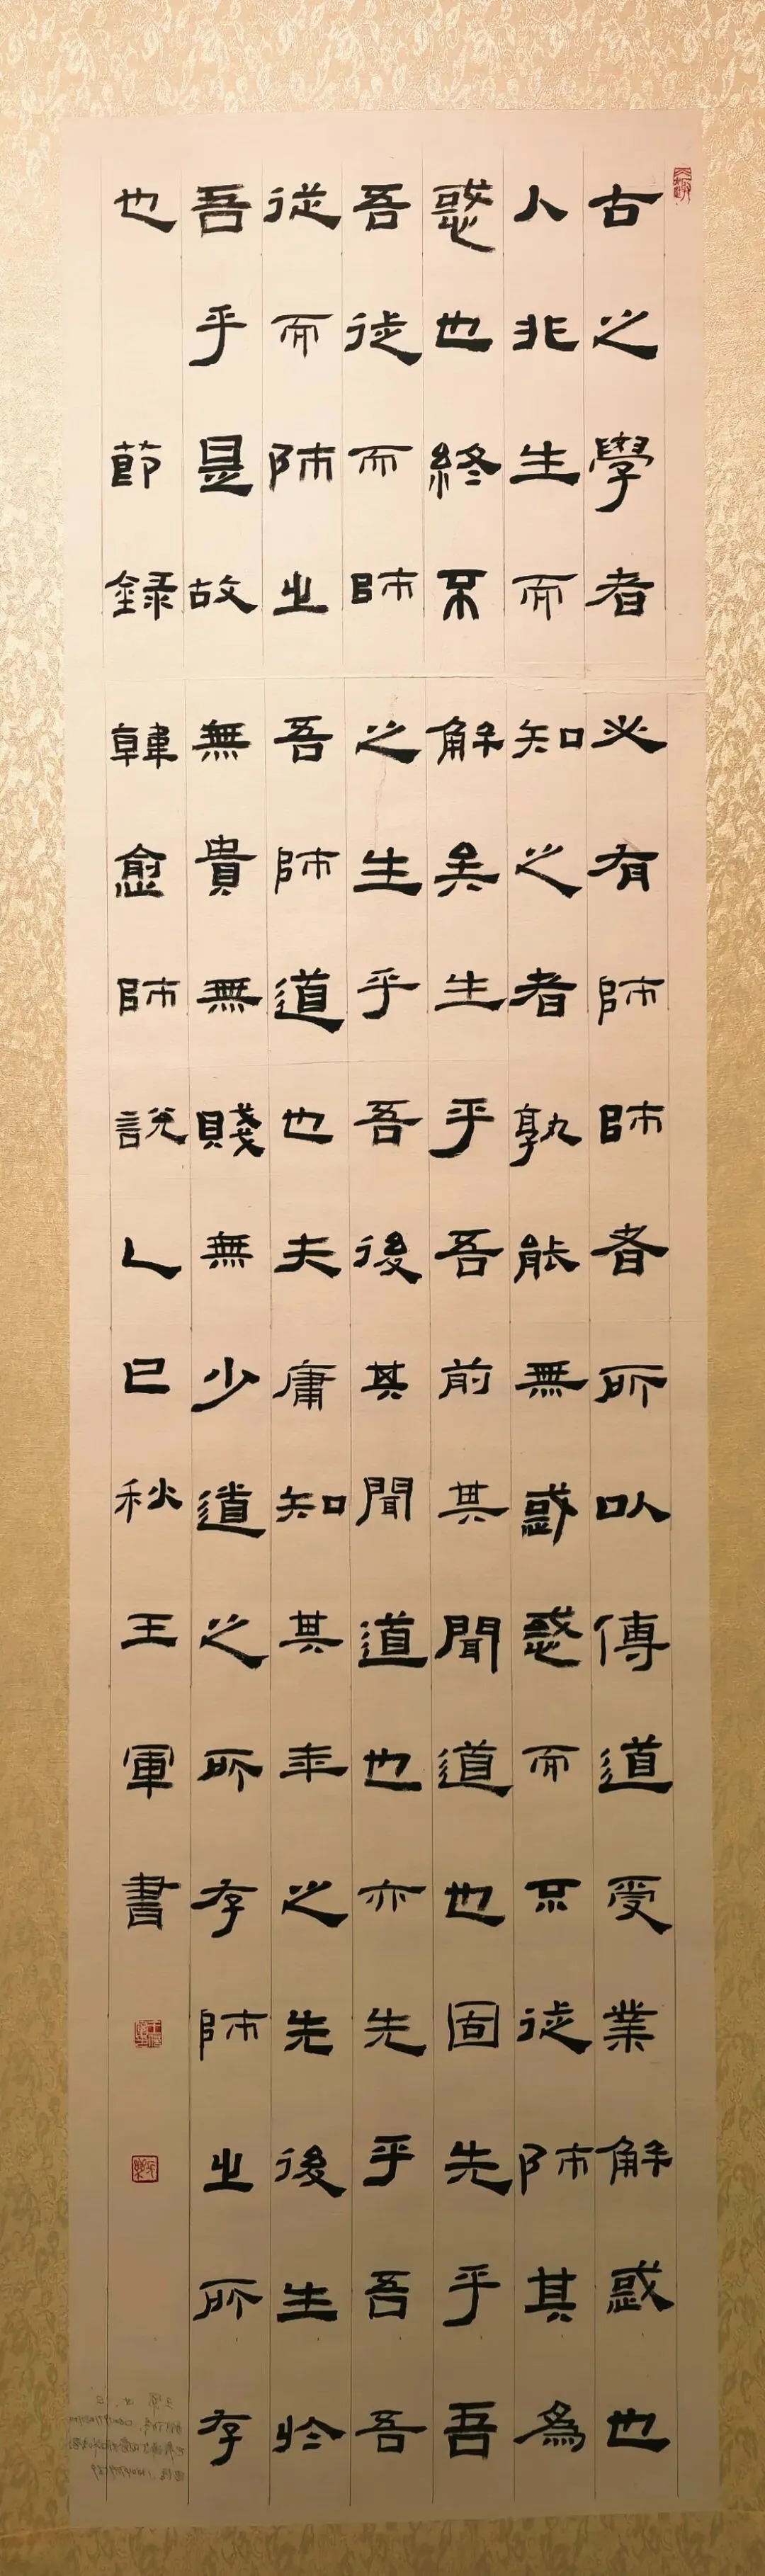 古之學者必有師師者所以傳道受業解惑也
人非生而知之者孰能無惑惑而不從師其為
惑也終不解矣生乎吾前其聞道也固先乎吾
吾從而師之生乎吾後其聞道也亦先乎吾吾
從而師之吾師道也夫庸知其年之先後生於
吾乎是故無貴無賤無少道之所存師之所存
也 節録韓愈師說乙巳秋王軍書